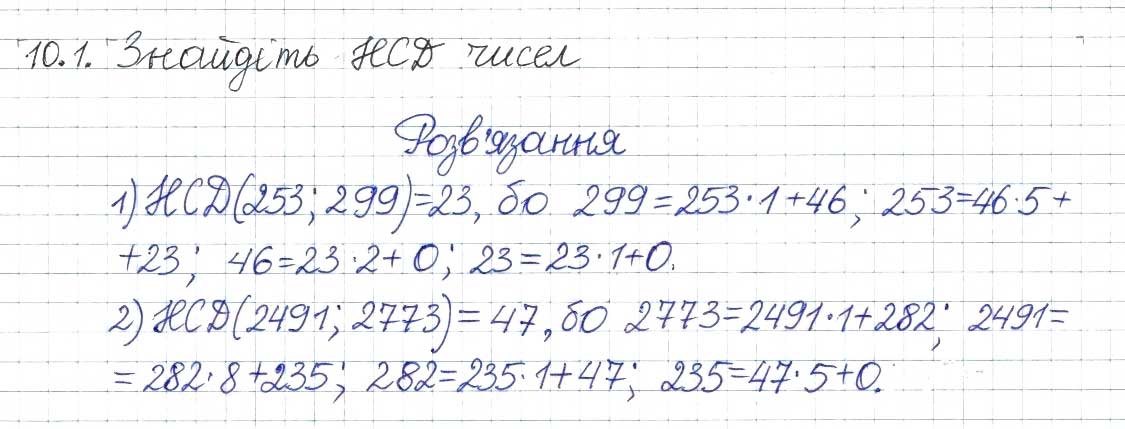 10.1. Знайдіть НСД чисел
Розв'язання
1) НСД(253; 299)=23, бо 299=253·1+46; 253=46·5+
+23; 46=23·2+0; 23=23·1+0.
2) НСД(2491; 2773)=47, бо 2773=2491·1+282; 2491=
=282·8+235; 282=235·1+47; 235=47·5+0.